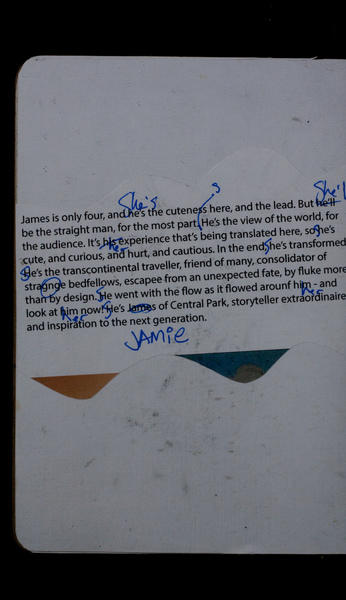 She's s She'll
James is only four, and he's the cuteness here, and the lead. But he'll
be the straight man, for the most part. He's the view of the world, for
the audience. It's his her experience that's being translated here, so s he's
cute, and curious, and hurt, and cautious. In the end, s he's transformed
S He's the transcontinental traveller, friend of many, consolidator of
stragnge bedfellows, escapee from an unexpected fate, by fluke more
than by design. S He went with the flow as it flowed arounf him - and
look at him now! her S He's James of Central Park, storyteller extraordinaire her
and inspiration to the next generation.
JAMie